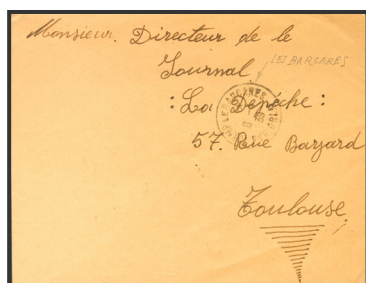 Monsieur. Directeur de le
Journal
LES BARCARES
: La Dépêche :
57. Rue Bayard
Toulouse